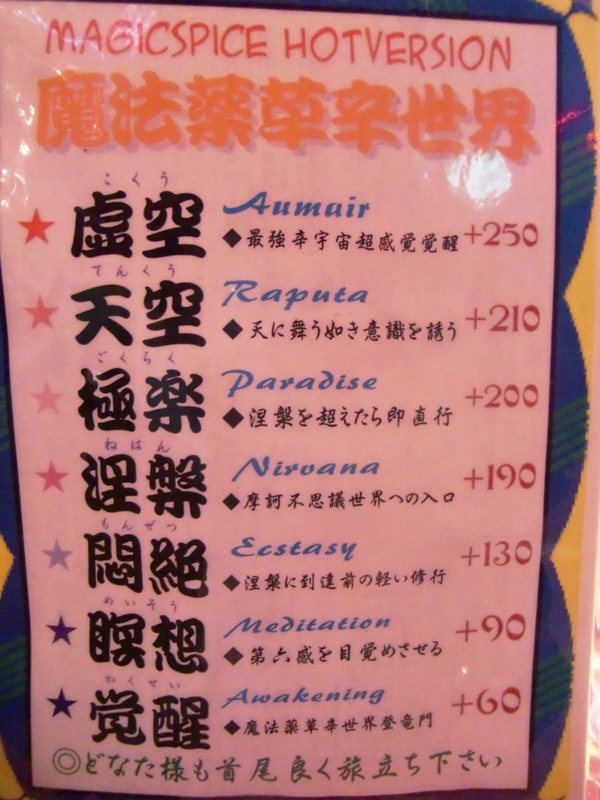 MAGICSPICE HOTVERSION
魔法薬草辛世界
こくう
★虚空 Aumair
◆最強辛宇宙超感覚覚醒 +250
てんくう
★天空 Raputa
◆天に舞う如き意識を誘う +210
ごくらく
★極楽 Paradise
◆涅槃を超えたら即直行 +200
ねはん
★涅槃 Nirvana
◆摩訶不思議世界への入口 +190
もんぜつ
★悶絶 Ecstasy
◆涅槃に到達前の軽い修行 +130
めいそう
★瞑想 Meditation
◆第六感を目覚めさせる +90
かくせい
★覚醒 Awakening
◆魔法薬草辛世界登竜門 +60
◎どなた様も首尾良く旅立ち下さい